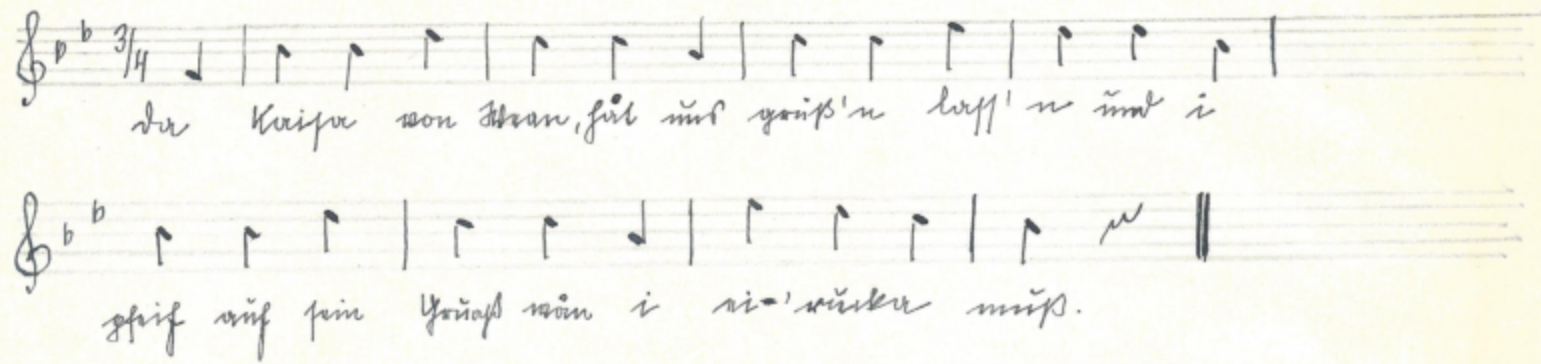 3/4
da Kaisa von Wean, håt uns grüß'n lass'n und i
pfeif auf sein Gruaß wån i ei-'rucka muß.